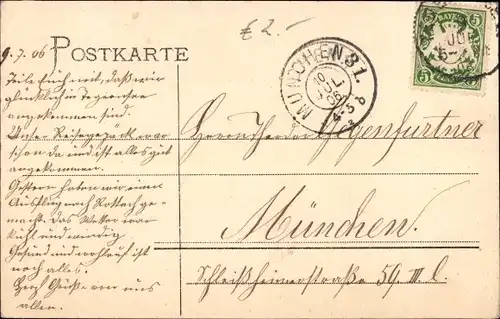 £ 2.-
9.7.06
POSTKARTE
MÜNCHEN 31.
10 JUL 06
4-5 b
BAYERN
5 5
JUL
Teile Euch mit, daß wir
glücklich in Tegernsee
angekommen sind.
Unser Reisegepäck war
schon da und ist alles gut
angekommen.
Gestern haben wir einen
Ausflug nach Rottach ge-
macht. Das Wetter war
kühl und windig
Gesund und wohlauf ist
noch alles.
Herzl. Grüße von uns
allen.
Herrn Theodor Gegenfurtner
München.
Schleißheimerstraße 59 III l.